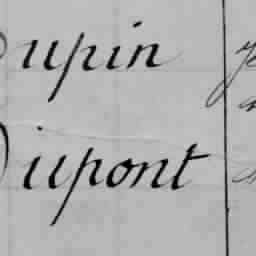 Dupin
Dupont